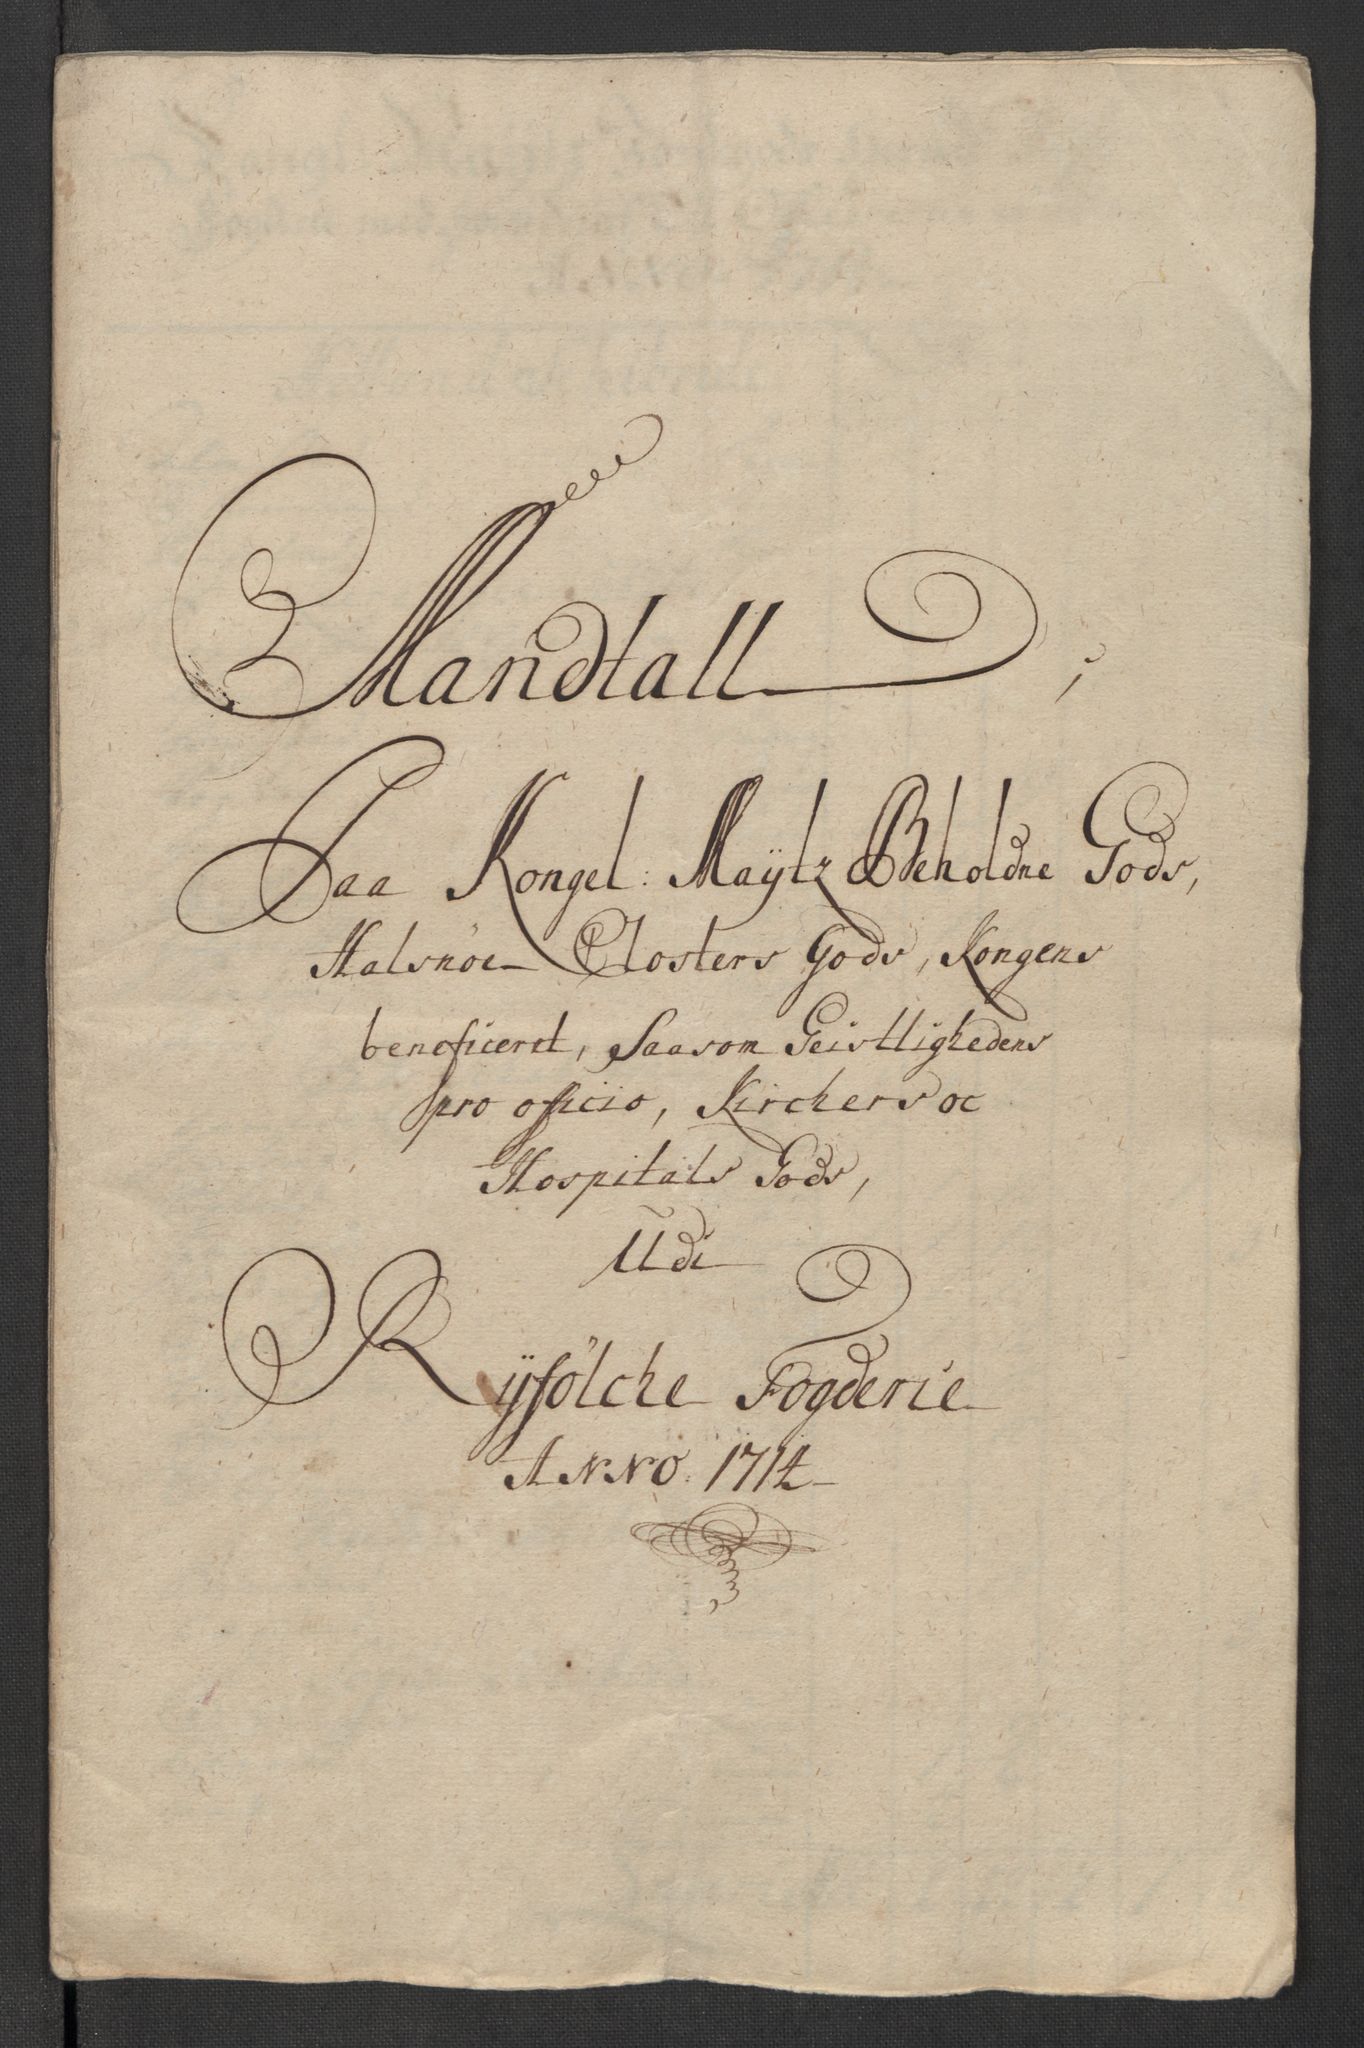 Mandtall
Paa Kongel: Maÿtz Beholdne Gods,
Halsnöe Closters Gods, Kongens
beneficeret, Saasom Geistlighedens
pro officio, Kirchers oc
Hospitals Gods,
Udi
Ryfölche Fogderie
ANNO: 1714